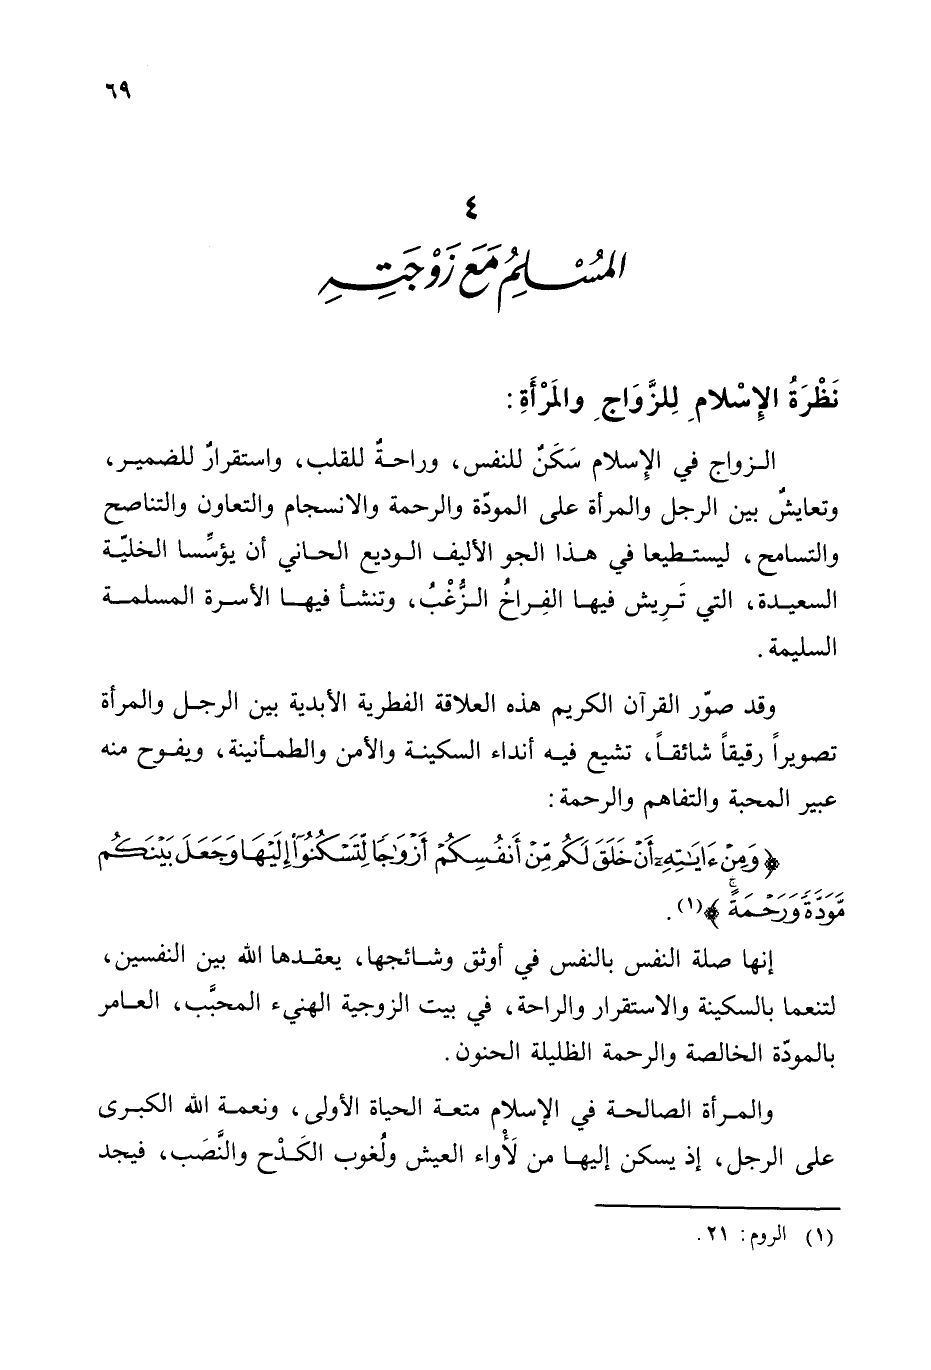 ٦٩
٤
المُسْلِمُ مَعَ زَوْجَتِهِ
نَظْرَةُ الإِسْلامِ لِلزَّوَاجِ والمَرْأَةِ :
الـزواج في الإِسلام سَكَنٌ للنفس، وراحـةٌ للقلب، واستقرارٌ للضميـر،
وتعايشٌ بين الرجل والمرأة على المودّة والرحمة والانسجام والتعاون والتناصح
والتسامح، ليستـطيعا في هـذا الجو الأليف الـوديع الحـاني أن يؤسِّسا الخليّـة
السعيـدة، التي تَـرِيش فيهـا الفِـراخُ الـزُّغْبُ، وتنشـأ فيهـا الأسرة المسلمـة
السليمة .
وقد صوّر القرآن الكريم هذه العلاقة الفطرية الأبدية بين الرجـل والمرأة
تصويراً رقيقاً شائقـاً، تشيع فيـه أنداء السكينـة والأمن والطمـأنينة، ويفـوح منه
عبير المحبة والتفاهم والرحمة :
﴿ وَمِنْ ءَايَٰتِهِۦٓ أَنْ خَلَقَ لَكُم مِّنْ أَنفُسِكُمْ أَزْوَٰجًا لِّتَسْكُنُوٓا۟ إِلَيْهَا وَجَعَلَ بَيْنَكُم
مَّوَدَّةً وَرَحْمَةً ۚ ﴾(١) .
إنها صلة النفس بالنفس في أوثق وشـائجها، يعقـدها الله بين النفسين،
لتنعما بالسكينة والاستقرار والراحة، في بيت الزوجية الهنيء المحبَّب، العـامر
بالمودّة الخالصة والرحمة الظليلة الحنون .
والمـرأة الصالحـة في الإِسلام متعـة الحياة الأولى، ونعمـة الله الكبـرى
على الرجل، إذ يسكن إليهـا من لَأْواء العيش ولُغوب الكَـدْح والنَّصَب، فيجد
(١) الروم : ٢١ .